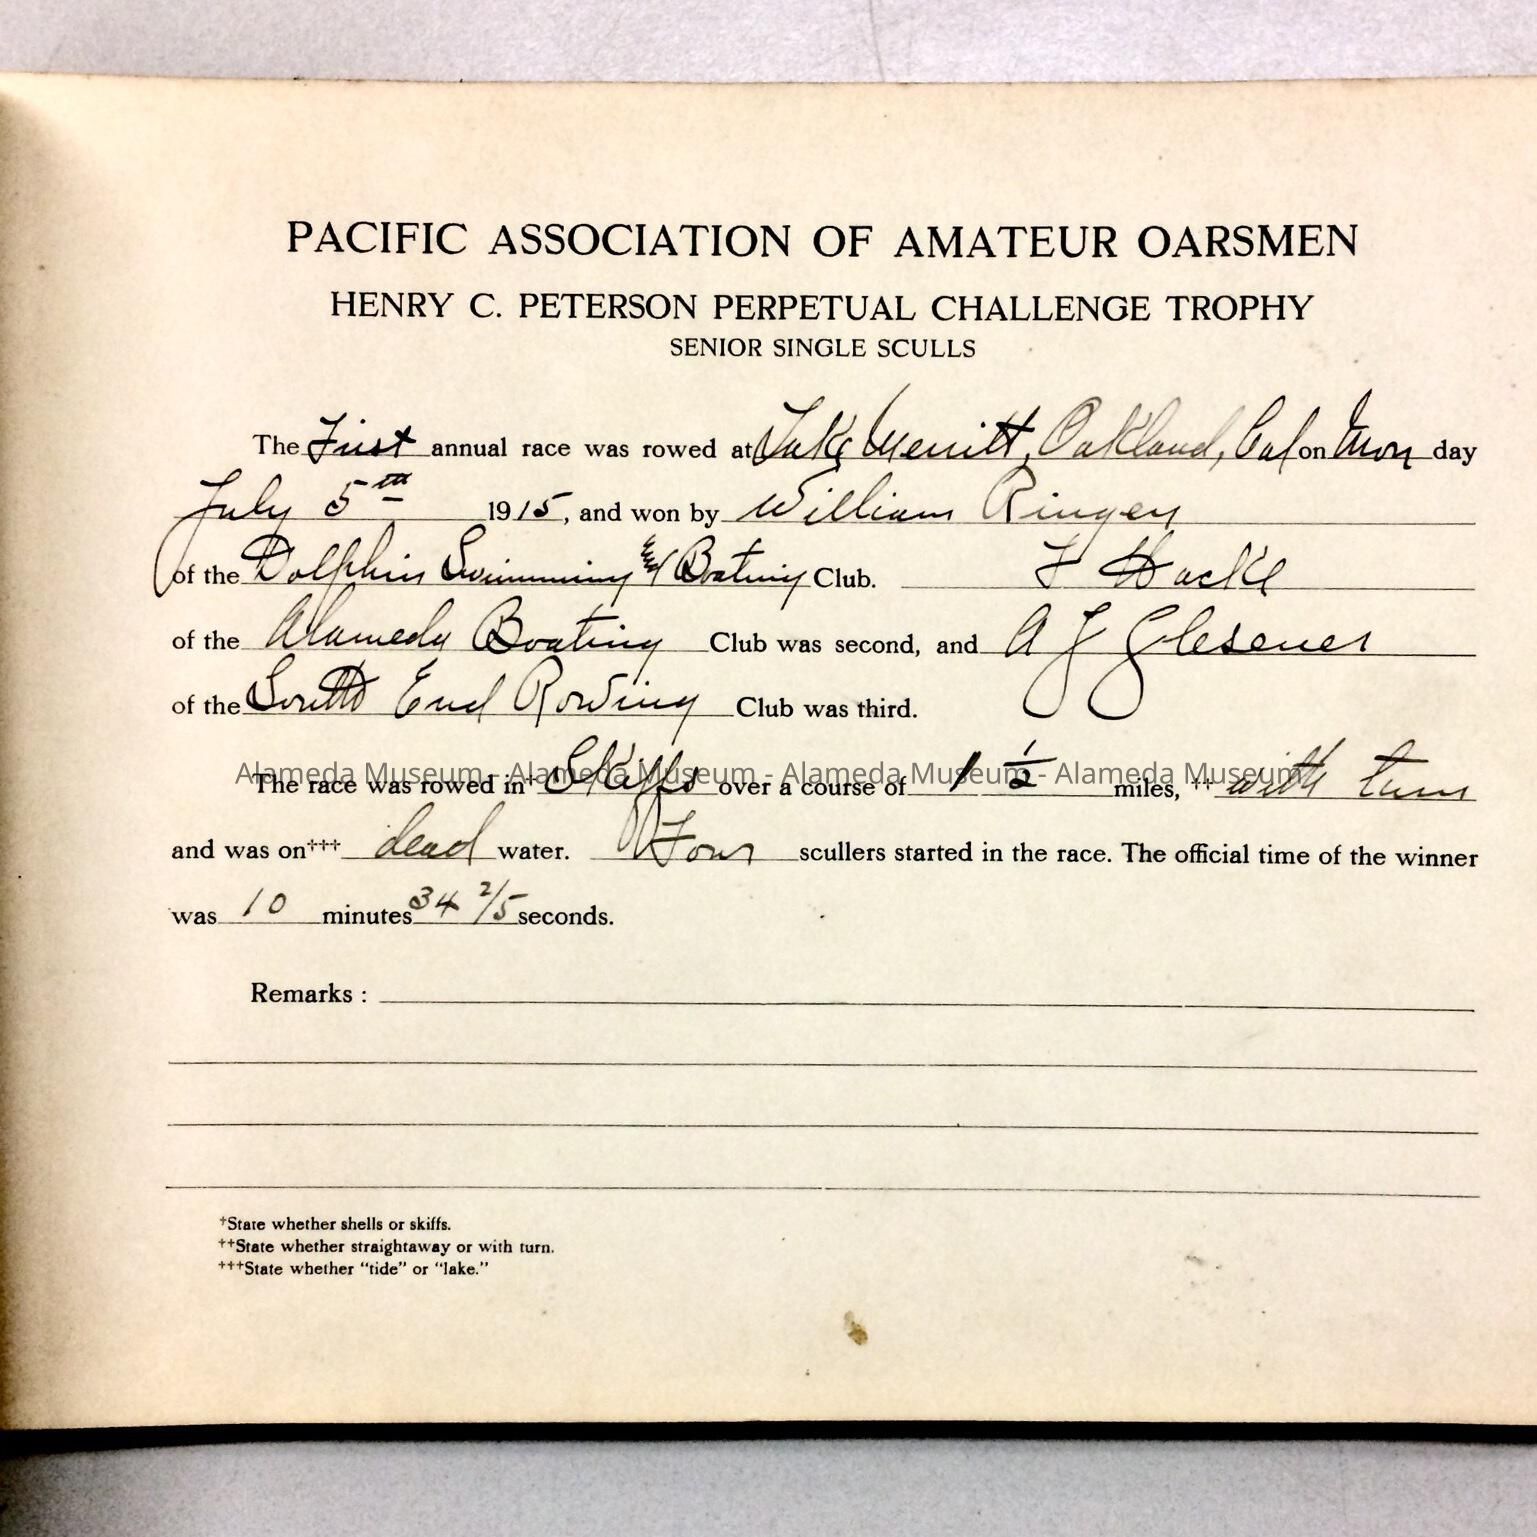 PACIFIC ASSOCIATION OF AMATEUR OARSMEN
HENRY C. PETERSON PERPETUAL CHALLENGE TROPHY
SENIOR SINGLE SCULLS
The First annual race was rowed at Lake Merritt, Oakland, Cal on Mon day
July 5th 1915, and won by William Ringen
of the Dolphin Swimming & Boating Club. F Hackl
of the Alameda Boating Club was second, and A J Glesener
of the South End Rowing Club was third.
Alameda Museum - Alameda Museum - Alameda Museum - Alameda Museum
The race was rowed in† Skiffs over a course of 1 1/2 miles, †† with turn
and was on††† dead water. Four scullers started in the race. The official time of the winner
was 10 minutes 34 2/5 seconds.
Remarks :
†State whether shells or skiffs.
††State whether straightaway or with turn.
†††State whether "tide" or "lake."